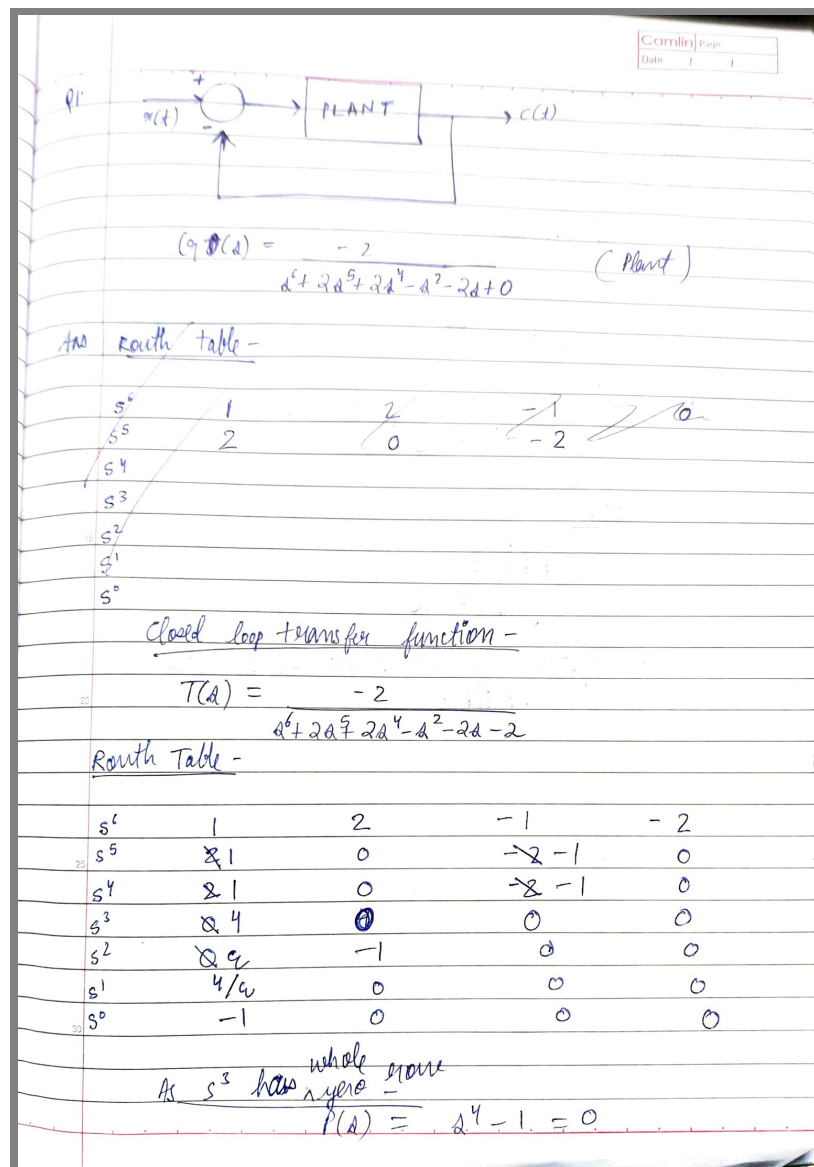 Camlin Page
Date / /
Q1.
+
r(t) - PLANT c(t)
G(s) = -2 / s⁶ + 2s⁵ + 2s⁴ - s² - 2s + 0 (Plant)
Ans Routh table -
s⁶ 1 2 -1 0
s⁵ 2 0 -2
s⁴
s³
15 s²
s¹
s⁰
Closed loop transfer function -
20 T(s) = -2 / s⁶ + 2s⁵ + 2s⁴ - s² - 2s - 2
Routh Table -
s⁶ 1 2 -1 -2
25 s⁵ 2 1 0 -2 -1 0
s⁴ 2 1 0 -2 -1 0
s³ 0 4 0 0 0
s² 0 ε -1 0 0
s¹ 4/ε 0 0 0
30 s⁰ -1 0 0 0
As s³ has whole zero row
P(s) = s⁴ - 1 = 0